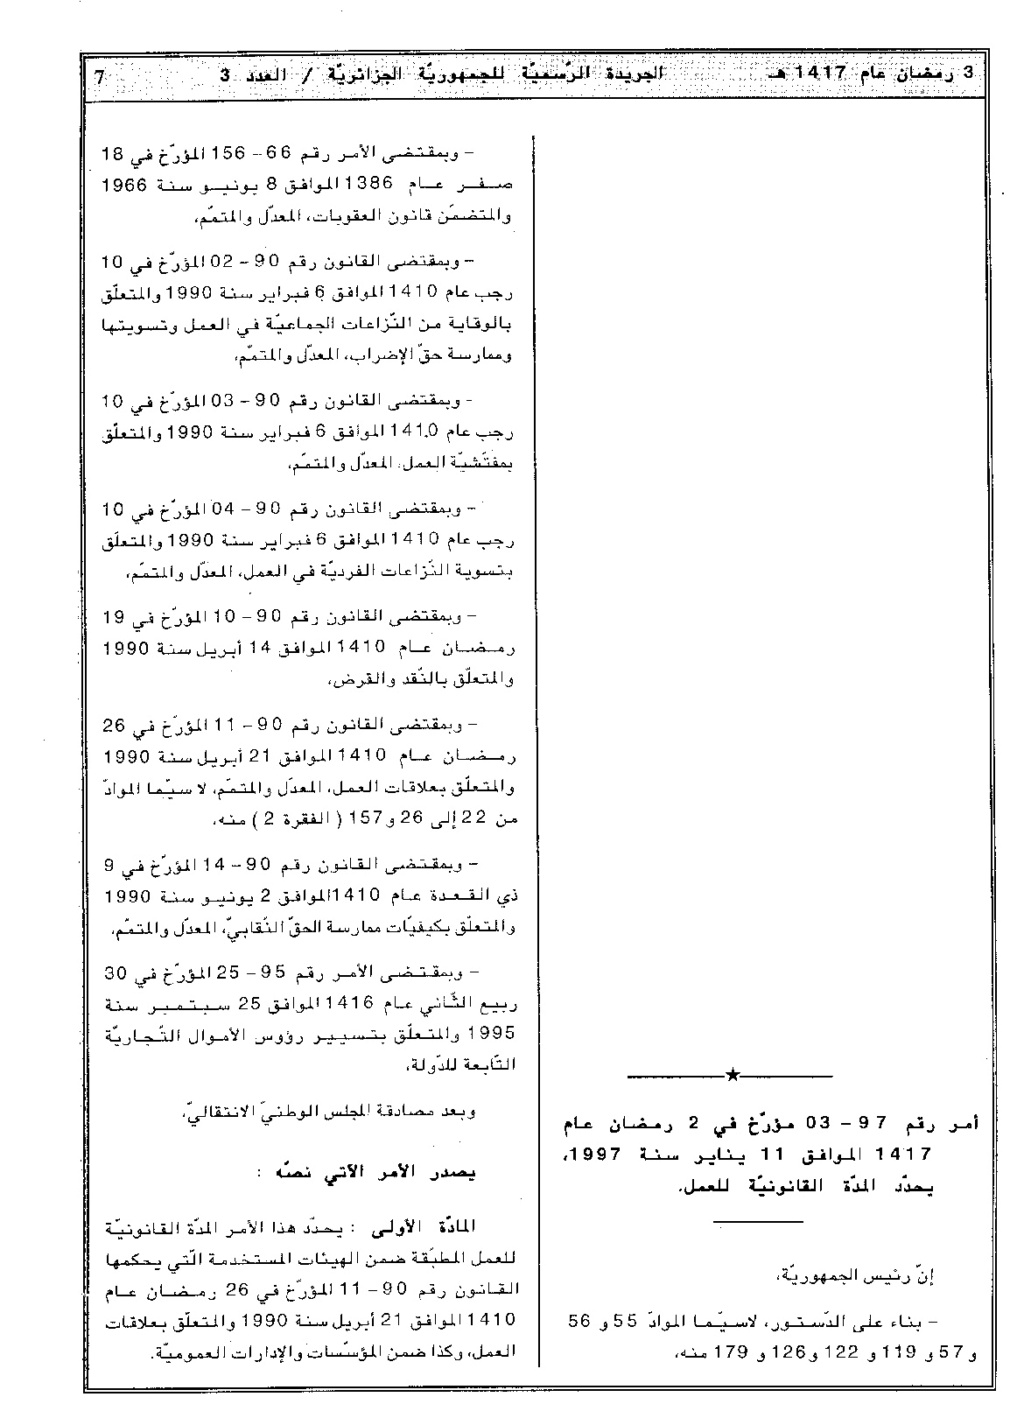 3 رمضان عام 1417 هـ
الجريدة الرّسميّة للجمهوريّة الجزائريّة / العدد 3
7
أمر رقم 97 - 03 مؤرّخ في 2 رمضان عام
1417 الموافق 11 يناير سنة 1997،
يحدّد المدّة القانونيّة للعمل.
إنّ رئيس الجمهوريّة،
- بناء على الدّستور، لاسيّما الموادّ 55 و 56
و 57 و 119 و 122 و 126 و 179 منه،
- وبمقتضى الأمر رقم 66 - 156 المؤرّخ في 18
صفر عام 1386 الموافق 8 يونيو سنة 1966
والمتضمّن قانون العقوبات، المعدّل والمتمّم،
- وبمقتضى القانون رقم 90 - 02 المؤرّخ في 10
رجب عام 1410 الموافق 6 فبراير سنة 1990 والمتعلّق
بالوقاية من النّزاعات الجماعيّة في العمل وتسويتها
وممارسة حقّ الإضراب، المعدّل والمتمّم،
- وبمقتضى القانون رقم 90 - 03 المؤرّخ في 10
رجب عام 1410 الموافق 6 فبراير سنة 1990 والمتعلّق
بمفتّشيّة العمل، المعدّل والمتمّم،
- وبمقتضى القانون رقم 90 - 04 المؤرّخ في 10
رجب عام 1410 الموافق 6 فبراير سنة 1990 والمتعلّق
بتسوية النّزاعات الفرديّة في العمل، المعدّل والمتمّم،
- وبمقتضى القانون رقم 90 - 10 المؤرّخ في 19
رمضان عام 1410 الموافق 14 أبريل سنة 1990
والمتعلّق بالنّقد والقرض،
- وبمقتضى القانون رقم 90 - 11 المؤرّخ في 26
رمضان عام 1410 الموافق 21 أبريل سنة 1990
والمتعلّق بعلاقات العمل، المعدّل والمتمّم، لا سيّما الموادّ
من 22 إلى 26 و 157 ( الفقرة 2 ) منه،
- وبمقتضى القانون رقم 90 - 14 المؤرّخ في 9
ذي القعدة عام 1410 الموافق 2 يونيو سنة 1990
والمتعلّق بكيفيّات ممارسة الحقّ النّقابيّ، المعدّل والمتمّم،
- وبمقتضى الأمر رقم 95 - 25 المؤرّخ في 30
ربيع الثّاني عام 1416 الموافق 25 سبتمبر سنة
1995 والمتعلّق بتسيير رؤوس الأموال التّجاريّة
التّابعة للدّولة،
وبعد مصادقة المجلس الوطنيّ الانتقاليّ،
يصدر الأمر الآتي نصّه :
المادّة الأولى : يحدّد هذا الأمر المدّة القانونيّة
للعمل المطبّقة ضمن الهيئات المستخدمة الّتي يحكمها
القانون رقم 90 - 11 المؤرّخ في 26 رمضان عام
1410 الموافق 21 أبريل سنة 1990 والمتعلّق بعلاقات
العمل، وكذا ضمن المؤسّسات والإدارات العموميّة.